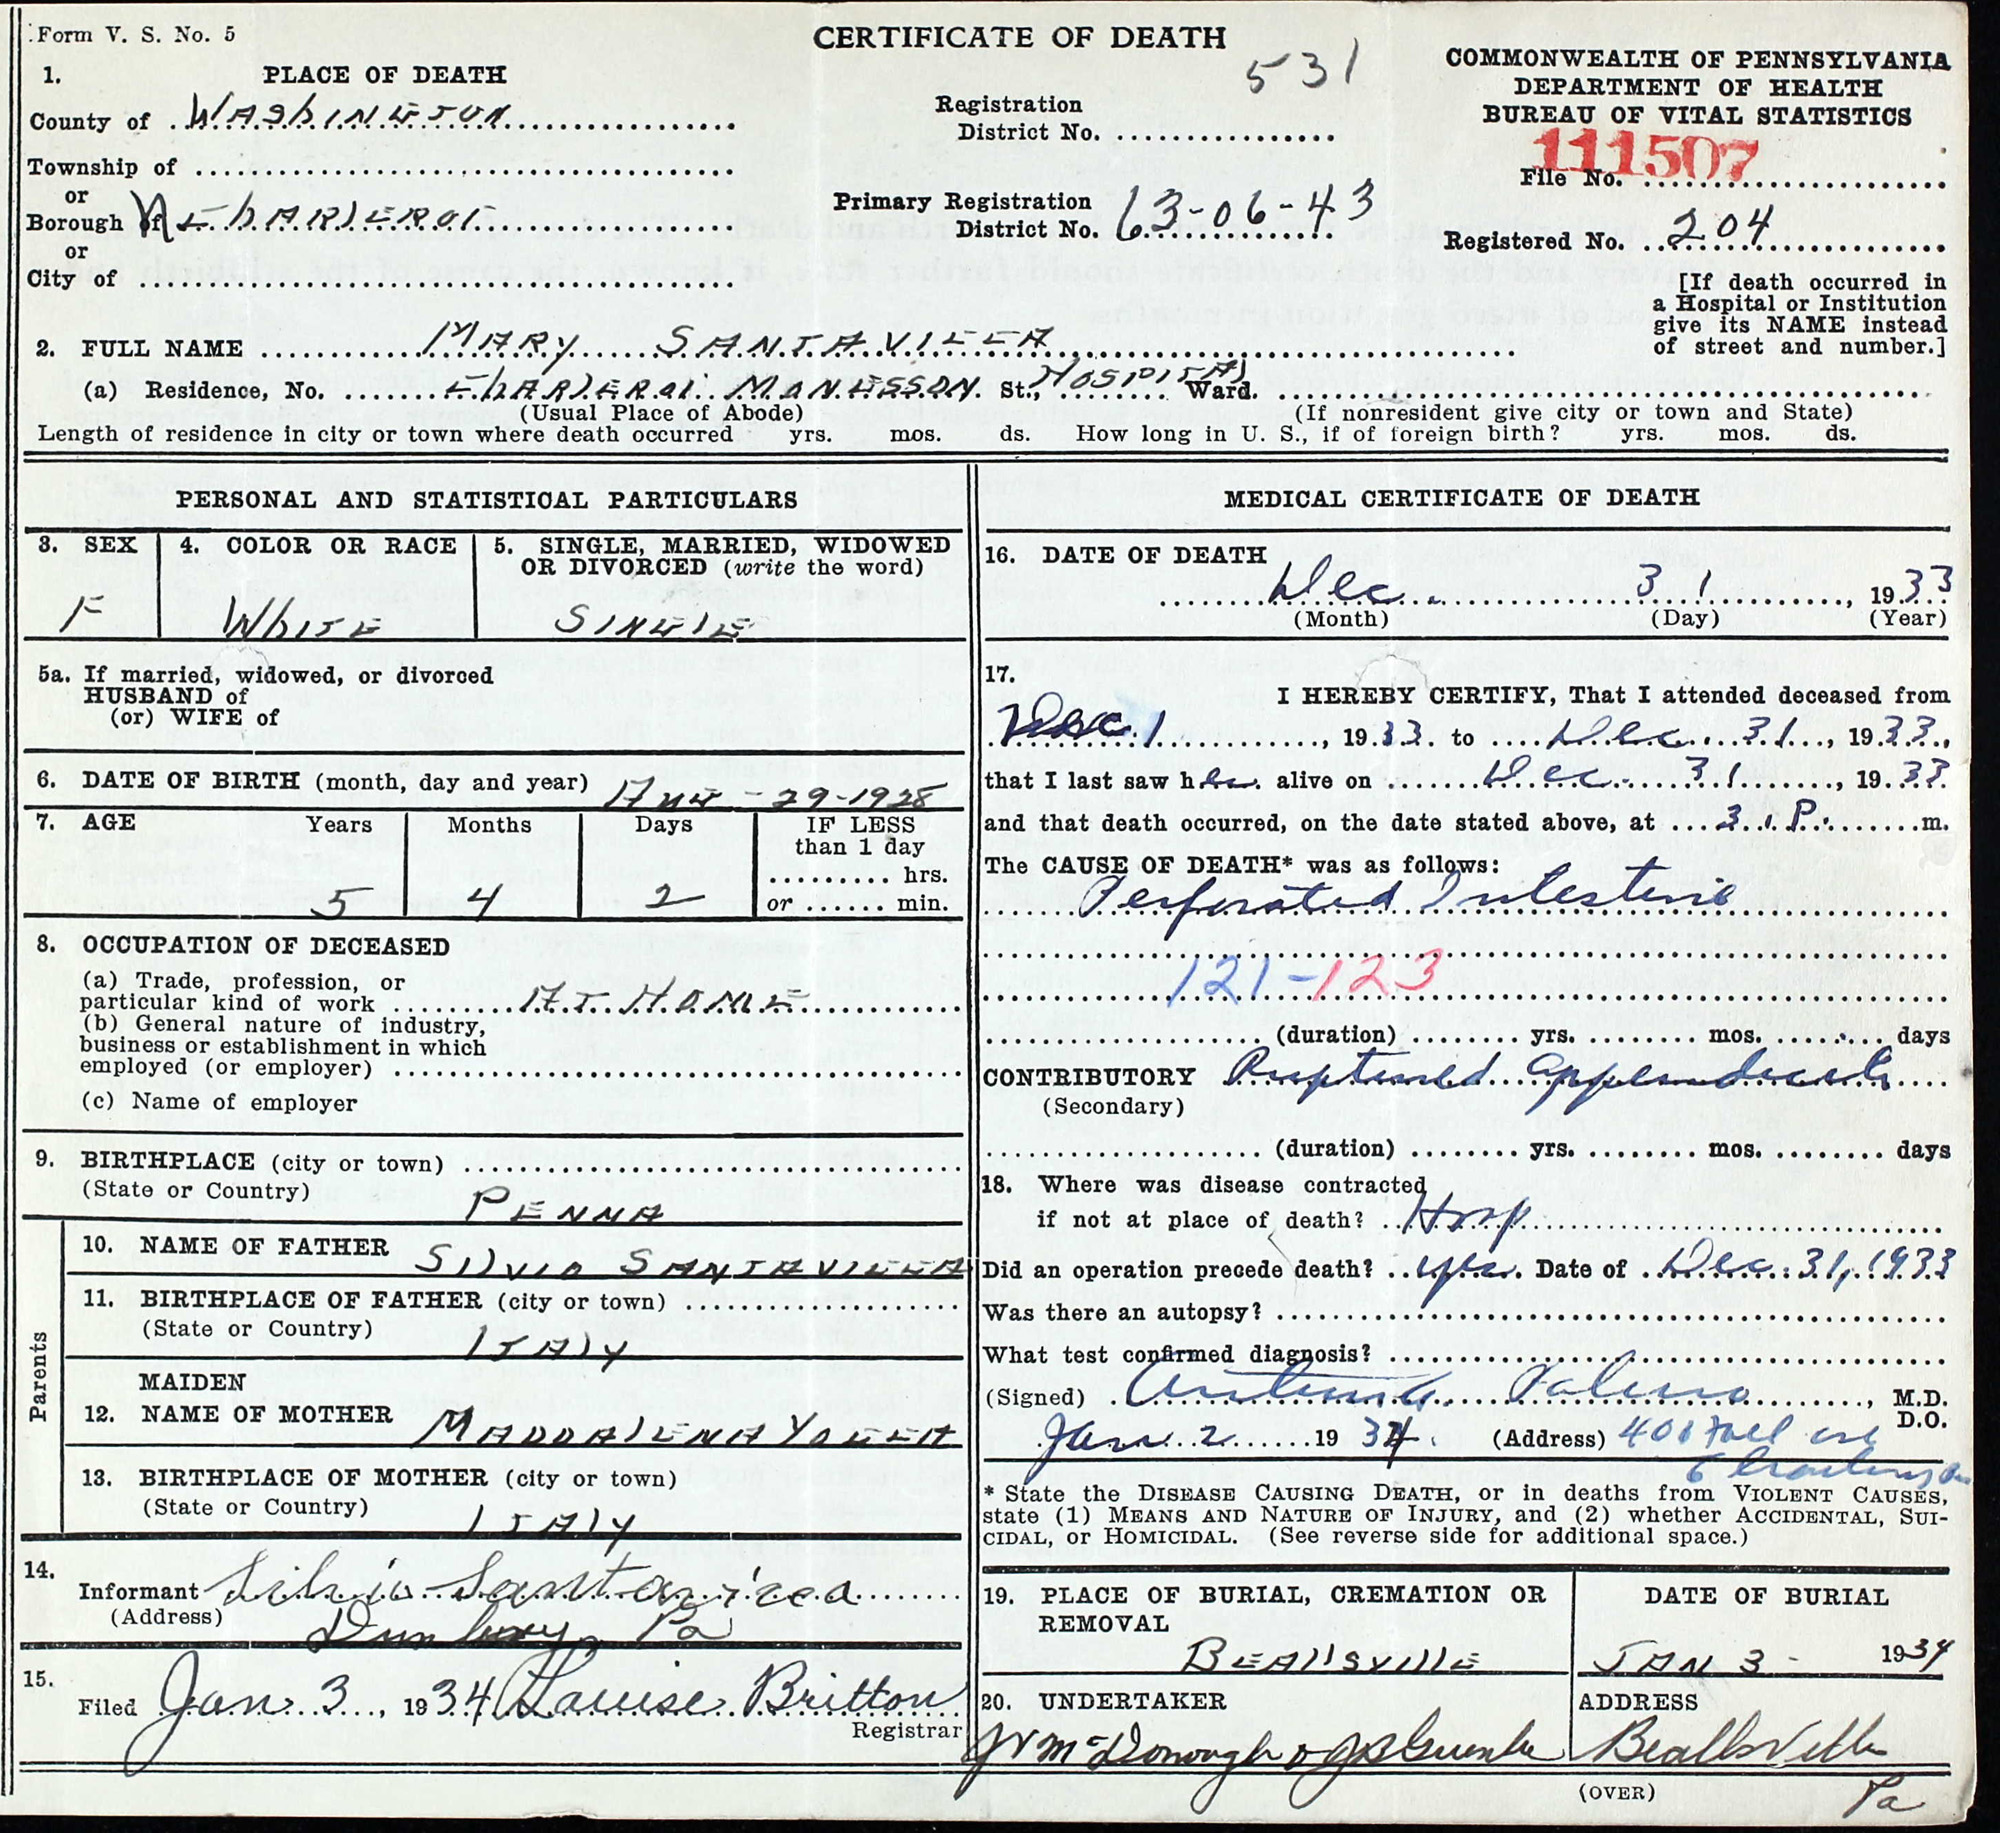 Form V. S. No. 5
CERTIFICATE OF DEATH
531
COMMONWEALTH OF PENNSYLVANIA
DEPARTMENT OF HEALTH
BUREAU OF VITAL STATISTICS
111507
File No.
Registered No. 204
[If death occurred in
a Hospital or Institution
give its NAME instead
of street and number.]
Registration
District No.
Primary Registration
District No. 63-06-43
1. PLACE OF DEATH
County of WAShINGTON
Township of
or
Borough of N. ChARlEROI
or
City of
2. FULL NAME MARY SANTAVICCA
(a) Residence, No. ChARlEROI MONESSON St., HOSPITAl Ward.
(Usual Place of Abode) (If nonresident give city or town and State)
Length of residence in city or town where death occurred yrs. mos. ds. How long in U. S., if of foreign birth? yrs. mos. ds.
PERSONAL AND STATISTICAL PARTICULARS
3. SEX
F
4. COLOR OR RACE
WhITE
5. SINGLE, MARRIED, WIDOWED
OR DIVORCED (write the word)
SINGlE
5a. If married, widowed, or divorced
HUSBAND of
(or) WIFE of
6. DATE OF BIRTH (month, day and year) AUG - 29-1928
7. AGE Years Months Days IF LESS
than 1 day
hrs.
or min.
5 4 2
8. OCCUPATION OF DECEASED
(a) Trade, profession, or
particular kind of work AT HOME
(b) General nature of industry,
business or establishment in which
employed (or employer)
(c) Name of employer
9. BIRTHPLACE (city or town)
(State or Country) PENNA
Parents
10. NAME OF FATHER SIlVIO SANTAVICCA
11. BIRTHPLACE OF FATHER (city or town)
(State or Country) ITAlY
MAIDEN
12. NAME OF MOTHER MADDAlENA
13. BIRTHPLACE OF MOTHER (city or town)
(State or Country) ITAlY
14.
Informant Silvio Santavicca
(Address) Pa
15.
Filed Jan. 3, 1934 Louise Britton
Registrar
MEDICAL CERTIFICATE OF DEATH
16. DATE OF DEATH
Dec. 31, 1933
(Month) (Day) (Year)
17.
I HEREBY CERTIFY, That I attended deceased from
Dec 1, 1933 to Dec. 31, 1933,
that I last saw her alive on Dec. 31, 1933
and that death occurred, on the date stated above, at 3 P. m.
The CAUSE OF DEATH* was as follows:
Perforated Intestine
121-123
(duration) yrs. mos. days
CONTRIBUTORY Ruptured
(Secondary)
(duration) yrs. mos. days
18. Where was disease contracted
if not at place of death? Hosp
Did an operation precede death? yes. Date of Dec. 31, 1933
Was there an autopsy?
What test confirmed diagnosis?
(Signed) M.D.
D.O.
Jan. 2 1934. (Address) 401 Fall ave
* State the DISEASE CAUSING DEATH, or in deaths from VIOLENT CAUSES,
state (1) MEANS AND NATURE OF INJURY, and (2) whether ACCIDENTAL, SUI-
CIDAL, or HOMICIDAL. (See reverse side for additional space.)
19. PLACE OF BURIAL, CREMATION OR
REMOVAL
BEAllSVIllE
DATE OF BURIAL
JAN 3 - 1934
20. UNDERTAKER
McDonough &
ADDRESS
Beallsville
Pa
(OVER)